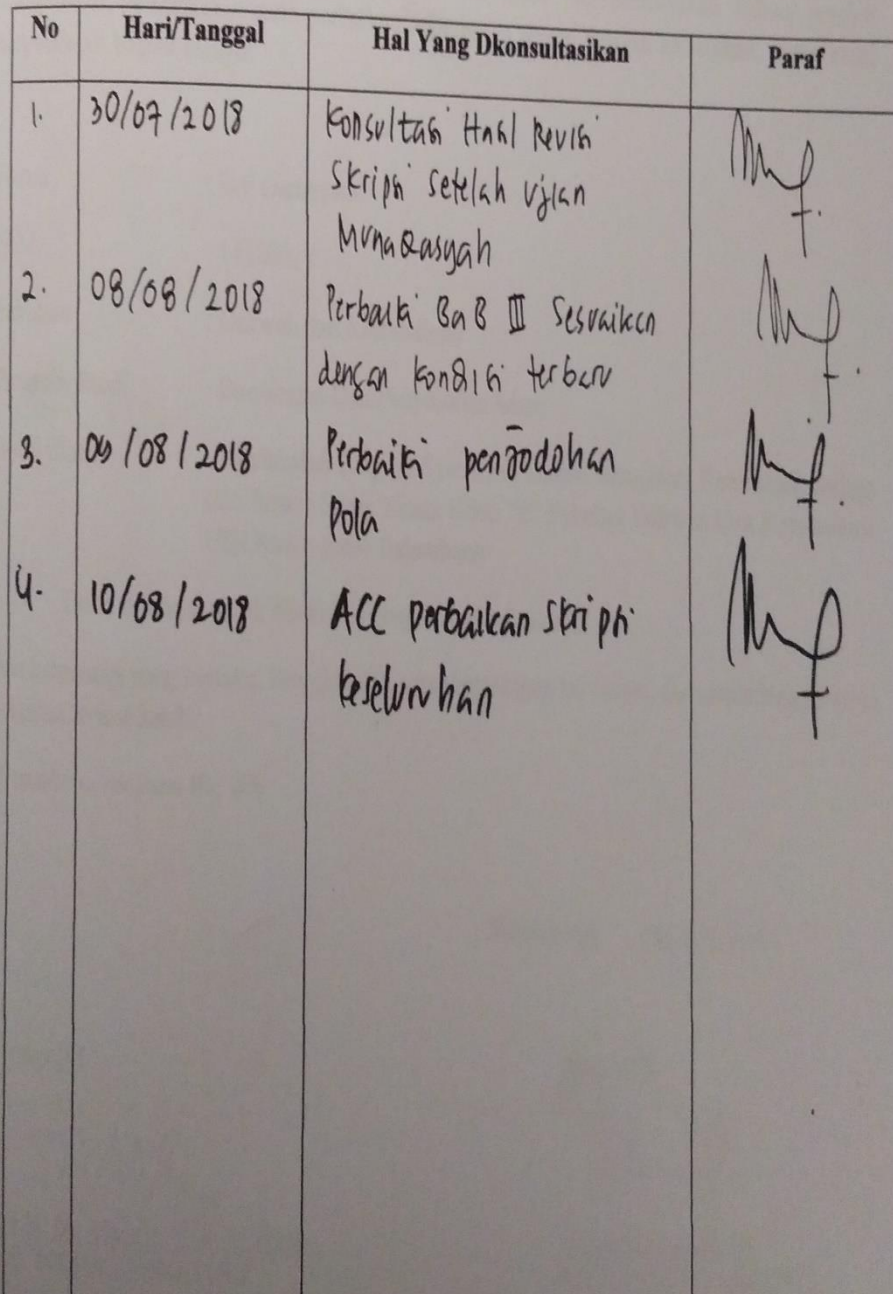 No Hari/Tanggal Hal Yang Dkonsultasikan Paraf
1. 30/07/2018 Konsultasi Hasil Revisi
Skripsi setelah Ujian
Munaqasyah
2. 08/08/2018 Perbaiki BaB III Sesuaikan
dengan kondisi terbaru
3. 09/08/2018 Perbaiki penjodohan
Pola
4. 10/08/2018 ACC perbaikan skripsi
keseluruhan